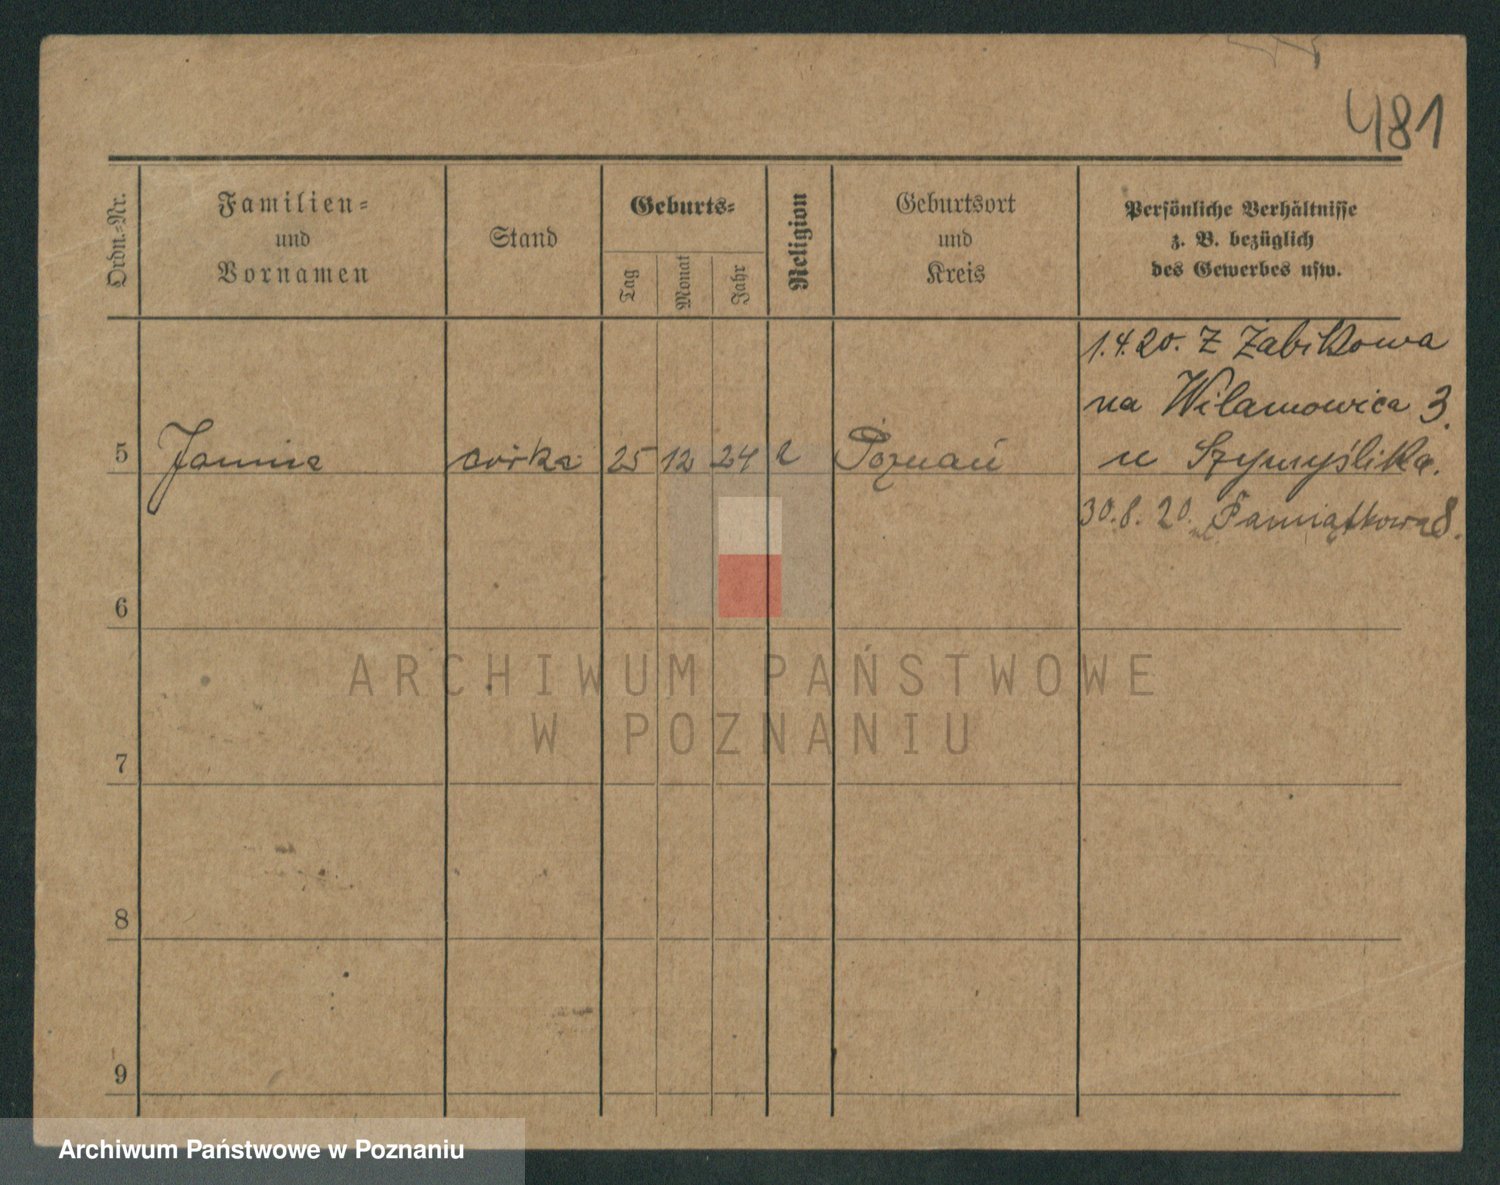 481
Ordn.-Nr.
Familien-
und
Vornamen
Stand
Geburts-
Tag
Monat
Jahr
Religion
Geburtsort
und
Kreis
Persönliche Verhältnisse
z. B. bezüglich
des Gewerbes usw.
1.4.20. Z Żabikowa
na Wilamowica 3.
5 Janina córka 25 12 24 Poznań u Szymyślika.
30.8.20. Pamiątkowa 8.
6
7
8
9
ARCHIWUM PAŃSTWOWE
W POZNANIU
Archiwum Państwowe w Poznaniu